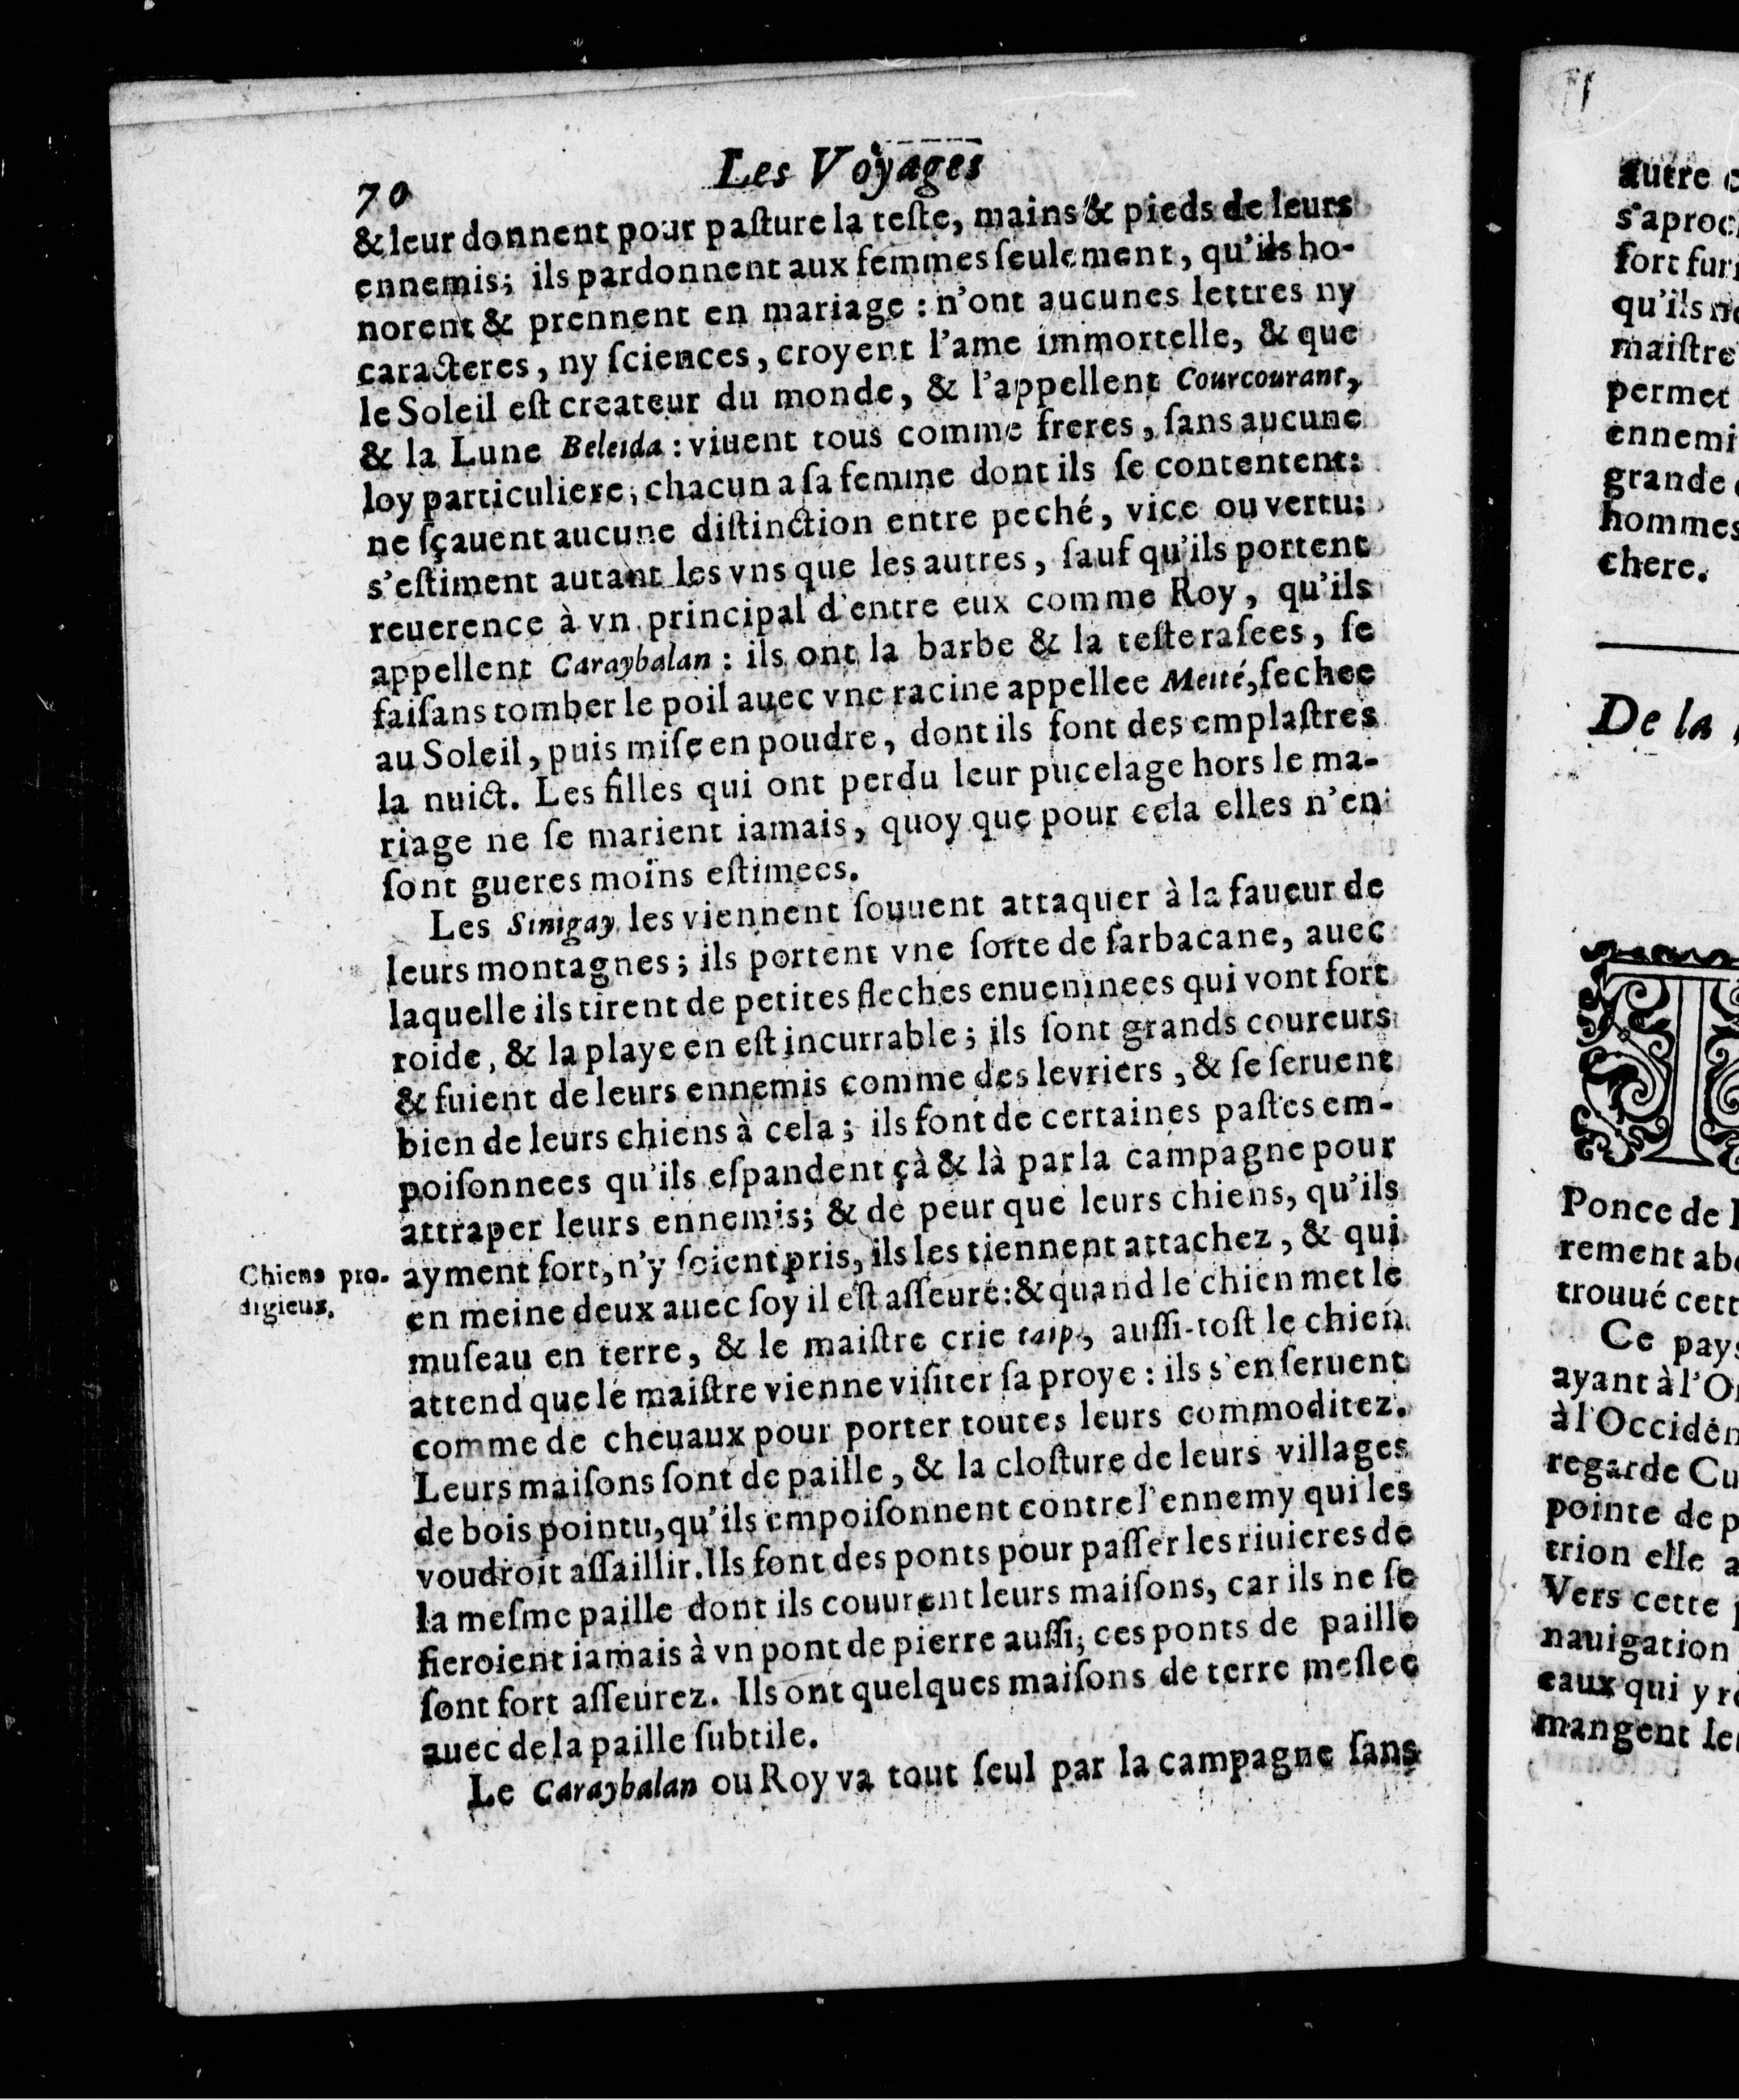 70
Les Voyages
& leur donnent pour paſture la teſte, mains & pieds de leurs
ennemis; ils pardonnent aux femmes ſeulement, qu'ils ho-
norent & prennent en mariage : n'ont aucunes lettres ny
caracteres, ny ſciences, croyent l'ame immortelle, & que
le Soleil eſt createur du monde, & l'appellent Courcourant,
& la Lune Beleida : viuent tous comme freres, ſans aucune
loy particuliere, chacun a ſa femme dont ils ſe contentent:
ne ſçauent aucune diſtinction entre peché, vice ou vertu:
s'eſtiment autant les vns que les autres, ſauf qu'ils portent
reuerence à vn principal d'entre eux comme Roy, qu'ils
appellent Caraybalan : ils ont la barbe & la teſte raſees, ſe
faiſans tomber le poil auec vne racine appellee Meité, ſechee
au Soleil, puis miſe en poudre, dont ils font des emplaſtres
la nuict. Les filles qui ont perdu leur pucelage hors le ma-
riage ne ſe marient iamais, quoy que pour cela elles n'en
ſont gueres moins eſtimees.
Les Sinigay les viennent ſouuent attaquer à la faueur de
leurs montagnes; ils portent vne ſorte de ſarbacane, auec
laquelle ils tirent de petites fleches enueninees qui vont fort
roide, & la playe en eſt incurrable; ils ſont grands coureurs
& fuient de leurs ennemis comme des levriers, & ſe ſeruent
bien de leurs chiens à cela; ils font de certaines paſtes em-
poiſonnees qu'ils eſpandent çà & là par la campagne pour
attraper leurs ennemis; & de peur que leurs chiens, qu'ils
ayment fort, n'y ſoient pris, ils les tiennent attachez, & qui
Chiens pro-
digieux.
en meine deux auec ſoy il eſt aſſeuré: & quand le chien met le
muſeau en terre, & le maiſtre crie taip, auſſi-toſt le chien
attend que le maiſtre vienne viſiter ſa proye : ils s'en ſeruent
comme de cheuaux pour porter toutes leurs commoditez.
Leurs maiſons ſont de paille, & la cloſture de leurs villages
de bois pointu, qu'ils empoiſonnent contre l'ennemy qui les
voudroit aſſaillir. Ils font des ponts pour paſſer les riuieres de
la meſme paille dont ils couurent leurs maiſons, car ils ne ſe
fieroient iamais à vn pont de pierre auſſi; ces ponts de paille
ſont fort aſſeurez. Ils ont quelques maiſons de terre meſlee
auec de la paille ſubtile.
Le Caraybalan ou Roy va tout ſeul par la campagne ſans
autre
s'aproc
fort furi
qu'ils ne
maiſtre
permet
ennemi
grande
hommes
chere.
De la
T
Ponce de
rement abo
trouué cett
Ce pays
ayant à l'Or
à l'Occiden
regarde Cu
pointe de p
trion elle a
Vers cette
nauigation
eaux qui y re
mangent le